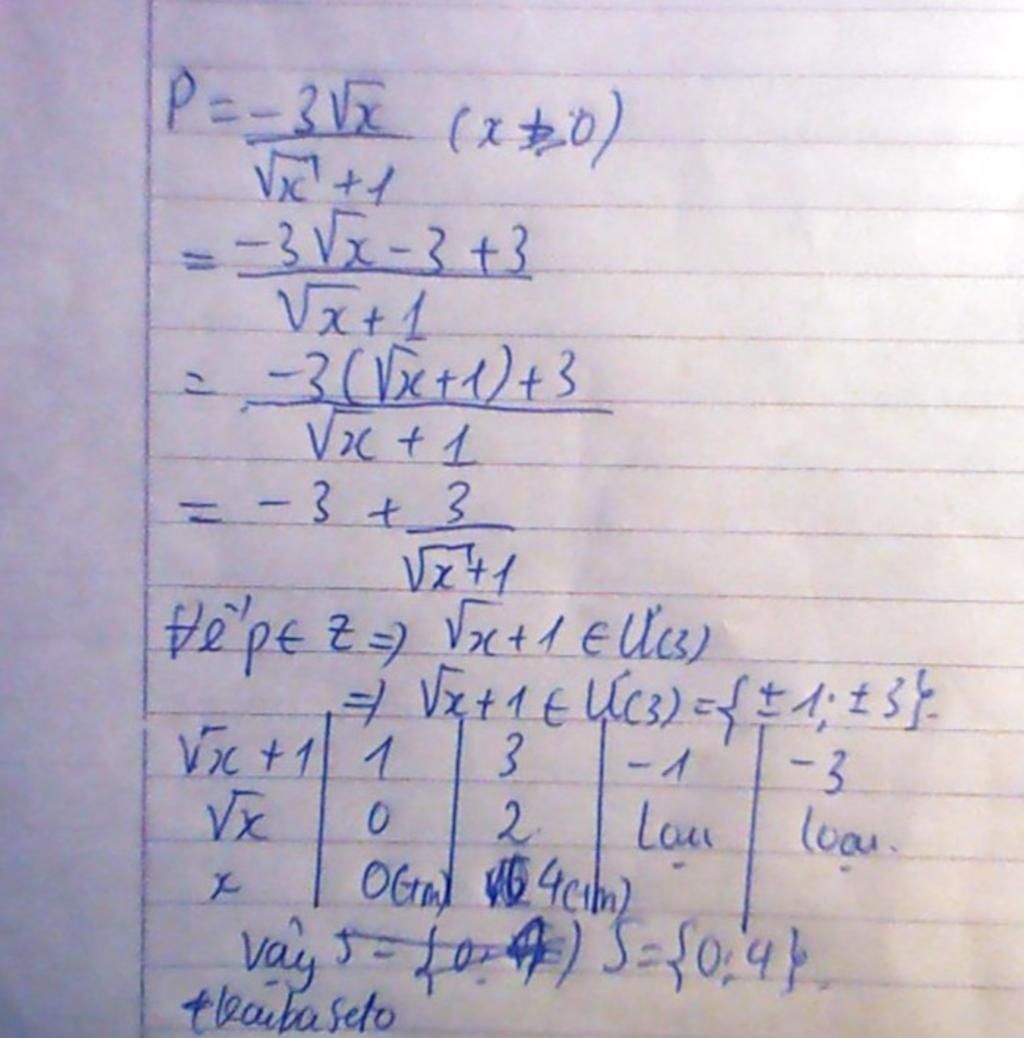 P = -3√x / √x + 1 (x ≥ 0)
= -3√x - 3 + 3 / √x + 1
= -3(√x + 1) + 3 / √x + 1
= -3 + 3 / √x + 1
Để p ∈ Z => √x + 1 ∈ Ư(3)
=> √x + 1 ∈ Ư(3) = {±1; ±3}.
√x + 1 | 1 | 3 | -1 | -3
√x | 0 | 2 | loại | loại.
x | 0(tm) | 4(tm)
Vậy S = {0; 4}.